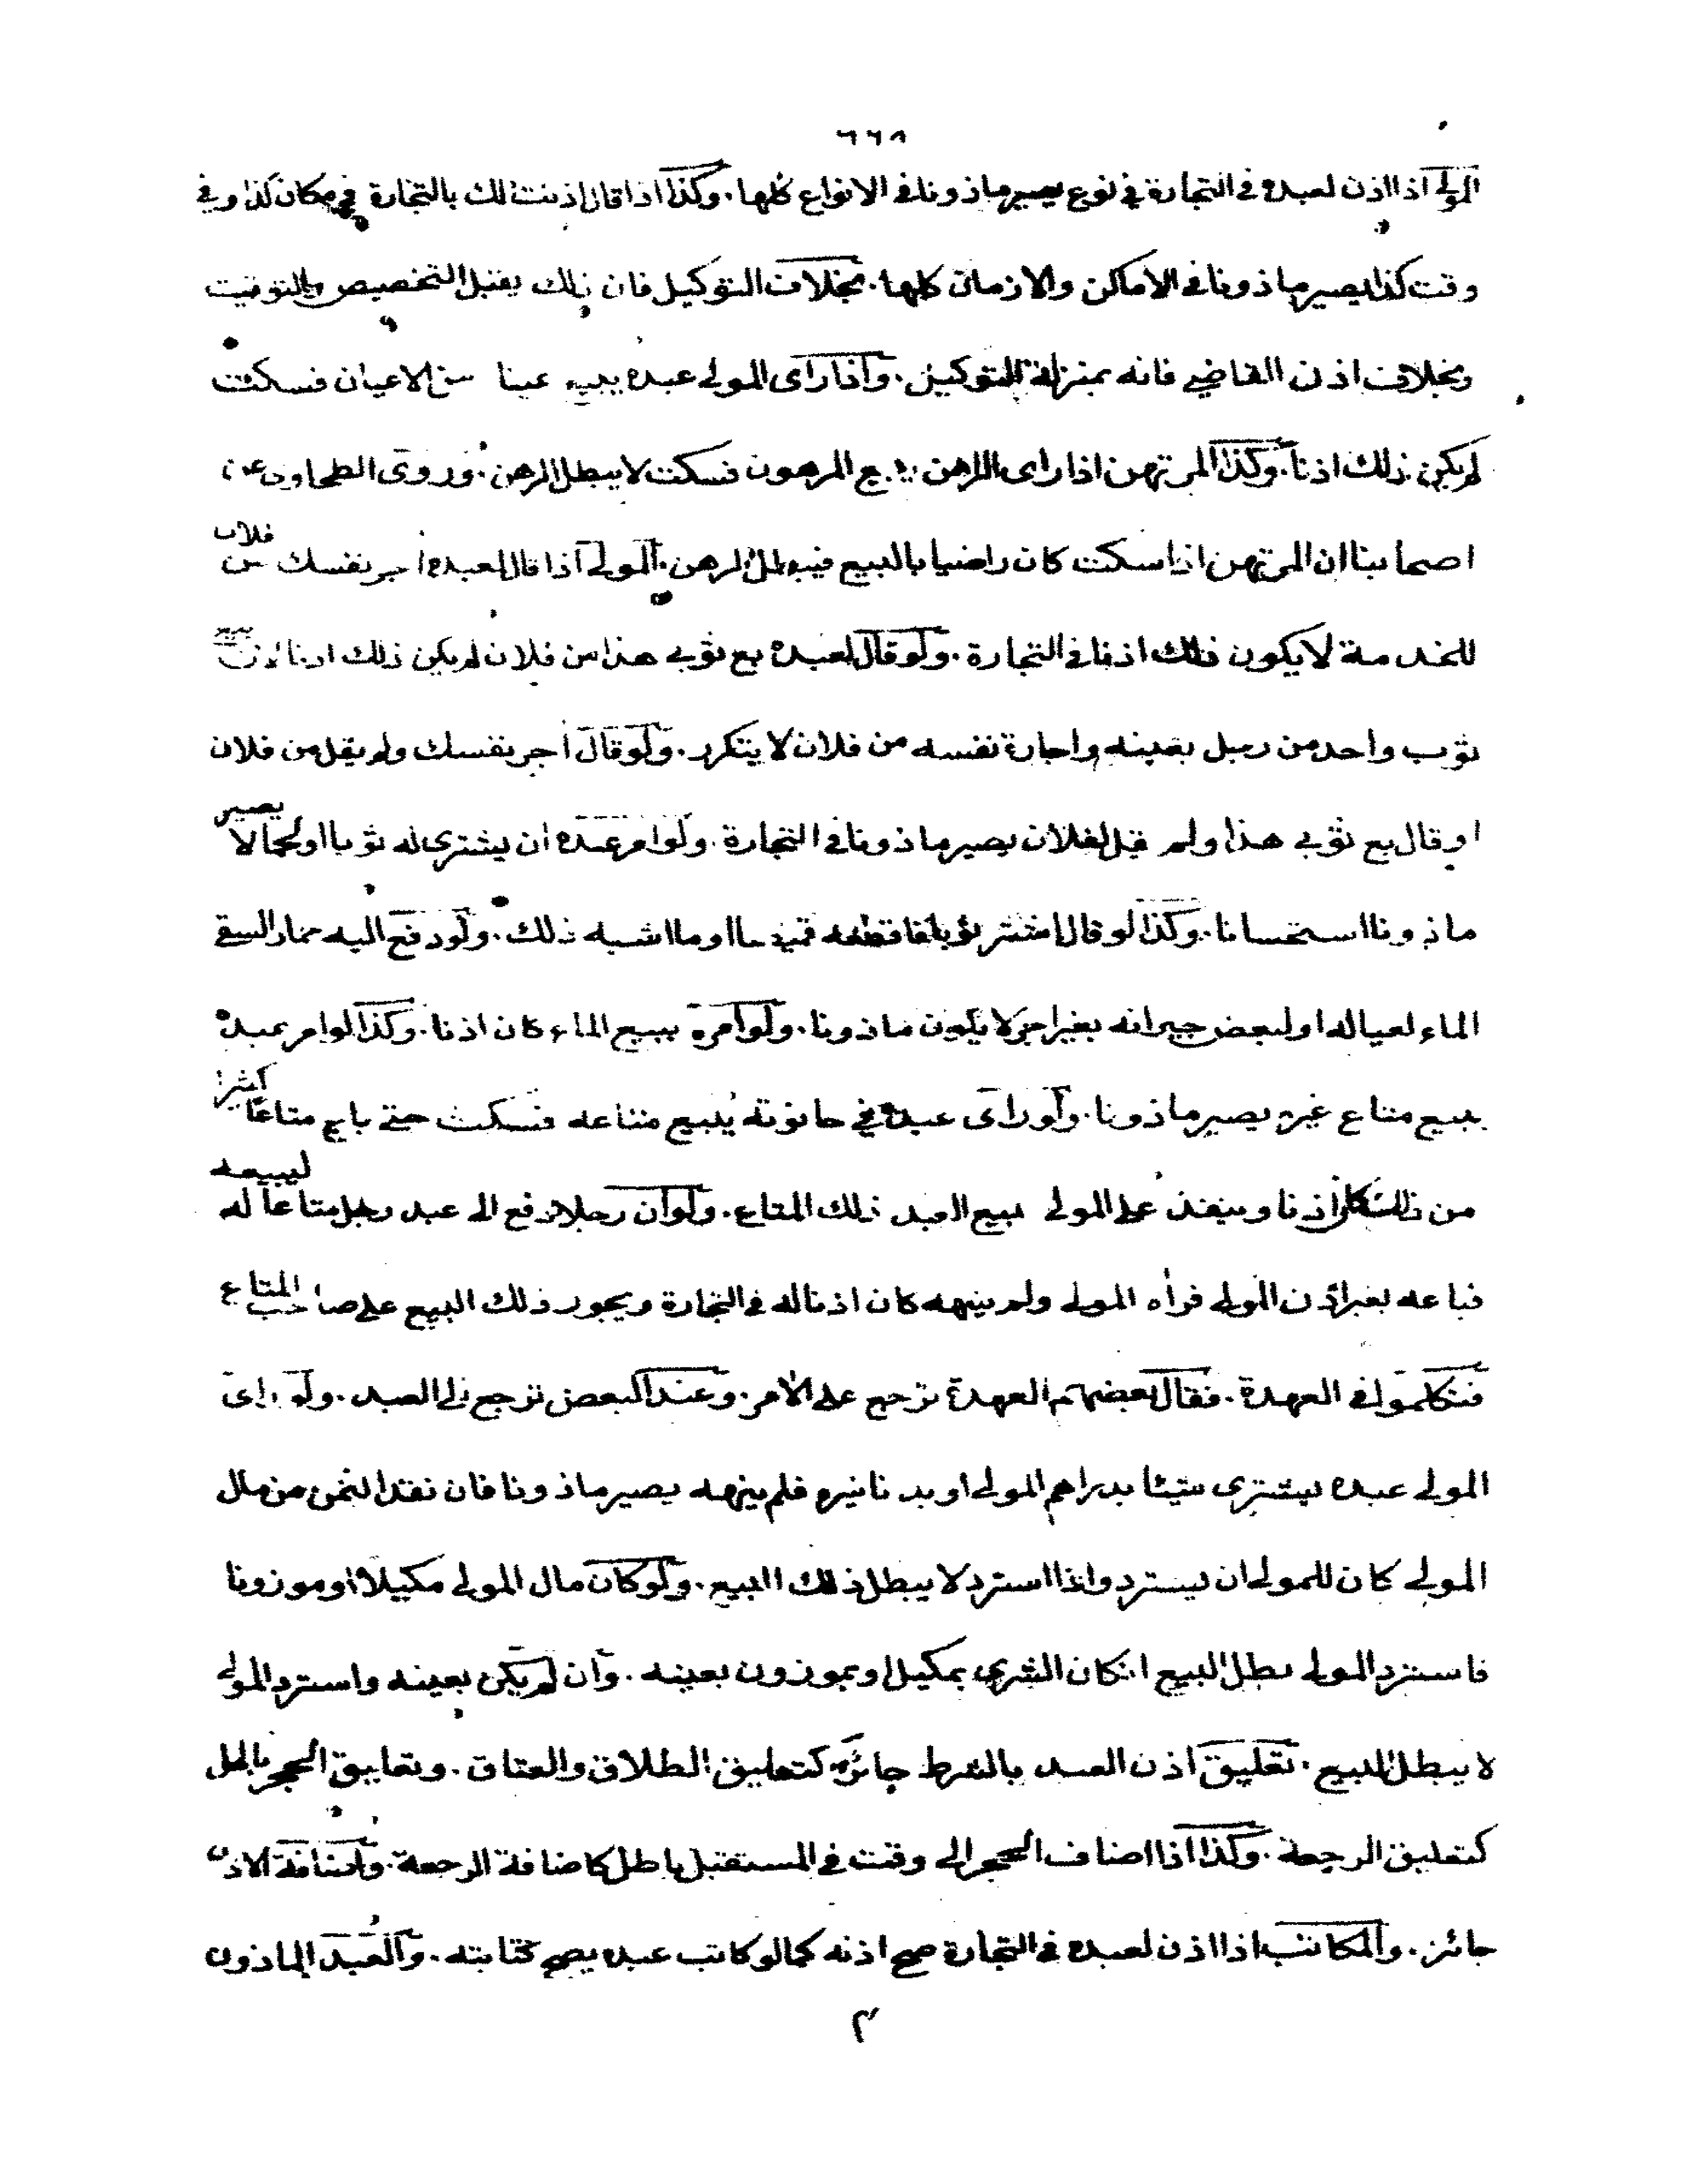 ٦٦٨
المولى اذا اذن لعبده في التجارة في نوع يصير ماذونا في الانواع كلها. وكذا اذا قال اذنت لك بالتجارة في مكان كذا وفي
وقت كذا يصير ماذونا في الاماكن والازمان كلها. بخلاف التوكيل فان ذلك يقبل التخصيص والتوقيت
وبخلاف اذن القاضي فانه بمنزلة التوكيل. واذا راى المولى عبده يبيع عينا من الاعيان فسكت
لم يكن ذلك اذنا. وكذا المرتهن اذا راى الراهن يبيع المرهون فسكت لا يبطل الرهن. وروى الطحاوي عن
اصحابنا ان المرتهن اذا سكت كان راضيا بالبيع فيبطل الرهن. المولى اذا قال لعبده اجر نفسك من فلان
للخدمة لا يكون ذلك اذنا في التجارة. ولو قال لعبده بع ثوبي هذا من فلان لم يكن ذلك اذنا لان
ثوب واحد من رجل بعينه واجارة نفسه من فلان لا يتكرر. ولو قال اجر نفسك ولم يقل من فلان
او قال بع ثوبي هذا ولم يقل لفلان يصير ماذونا في التجارة. ولو امر عبده ان يشتري له ثوبا او لحما لا يصير
ماذونا استحسانا. وكذا لو قال اشتر ثوبا فاقطعه قميصا او ما اشبه ذلك. ولو دفع اليه حمار السقي
الماء لعياله او لبعض جيرانه بغير اجر لا يكون ماذونا. ولو امره ببيع الماء كان اذنا. وكذا لو امر عبده
ببيع متاع غيره يصير ماذونا. ولو راى عبده في حانوته يبيع متاعه فسكت حتى باع متاعا كثيرا
من ذلك كان اذنا وينفذ على المولى بيع العبد ذلك المتاع. ولو ان رجلا دفع الى عبد رجل متاعا له ليبيعه
فباعه بغير اذن المولى فراه المولى ولم ينهه كان اذنا له في التجارة ويجوز ذلك البيع على صاحب المتاع
فتكلموا في العهدة. فقال بعضهم العهدة ترجع على الآمر. وعند البعض ترجع الى العبد. ولو راى
المولى عبده يشتري شيئا بدراهم المولى او بدنانيره فلم ينهه يصير ماذونا فان نقد الثمن من مال
المولى كان للمولى ان يسترد واذا استرد لا يبطل ذلك البيع. ولو كان مال المولى مكيلا او موزونا
فاسترد المولى بطل البيع ان كان الشري بمكيل او بموزون بعينه. وان لم يكن بعينه واسترد المولى
لا يبطل البيع. تعليق اذن العبد بالشرط جائز كتعليق الطلاق والعتاق. وتعليق الحجر باطل
كتعليق الرجعة. وكذا اذا اضاف الحجر الى وقت في المستقبل باطل كاضافة الرجعة. واضافة الاذن
جائز. والمكاتب اذا اذن لعبده في التجارة صح اذنه كما لو كاتب عبده يصح كتابته. والعبد الماذون